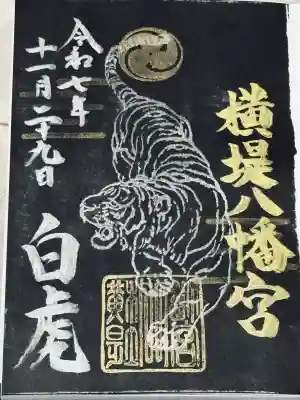 横堤八幡宮
令和七年
十一月二十九日
白虎